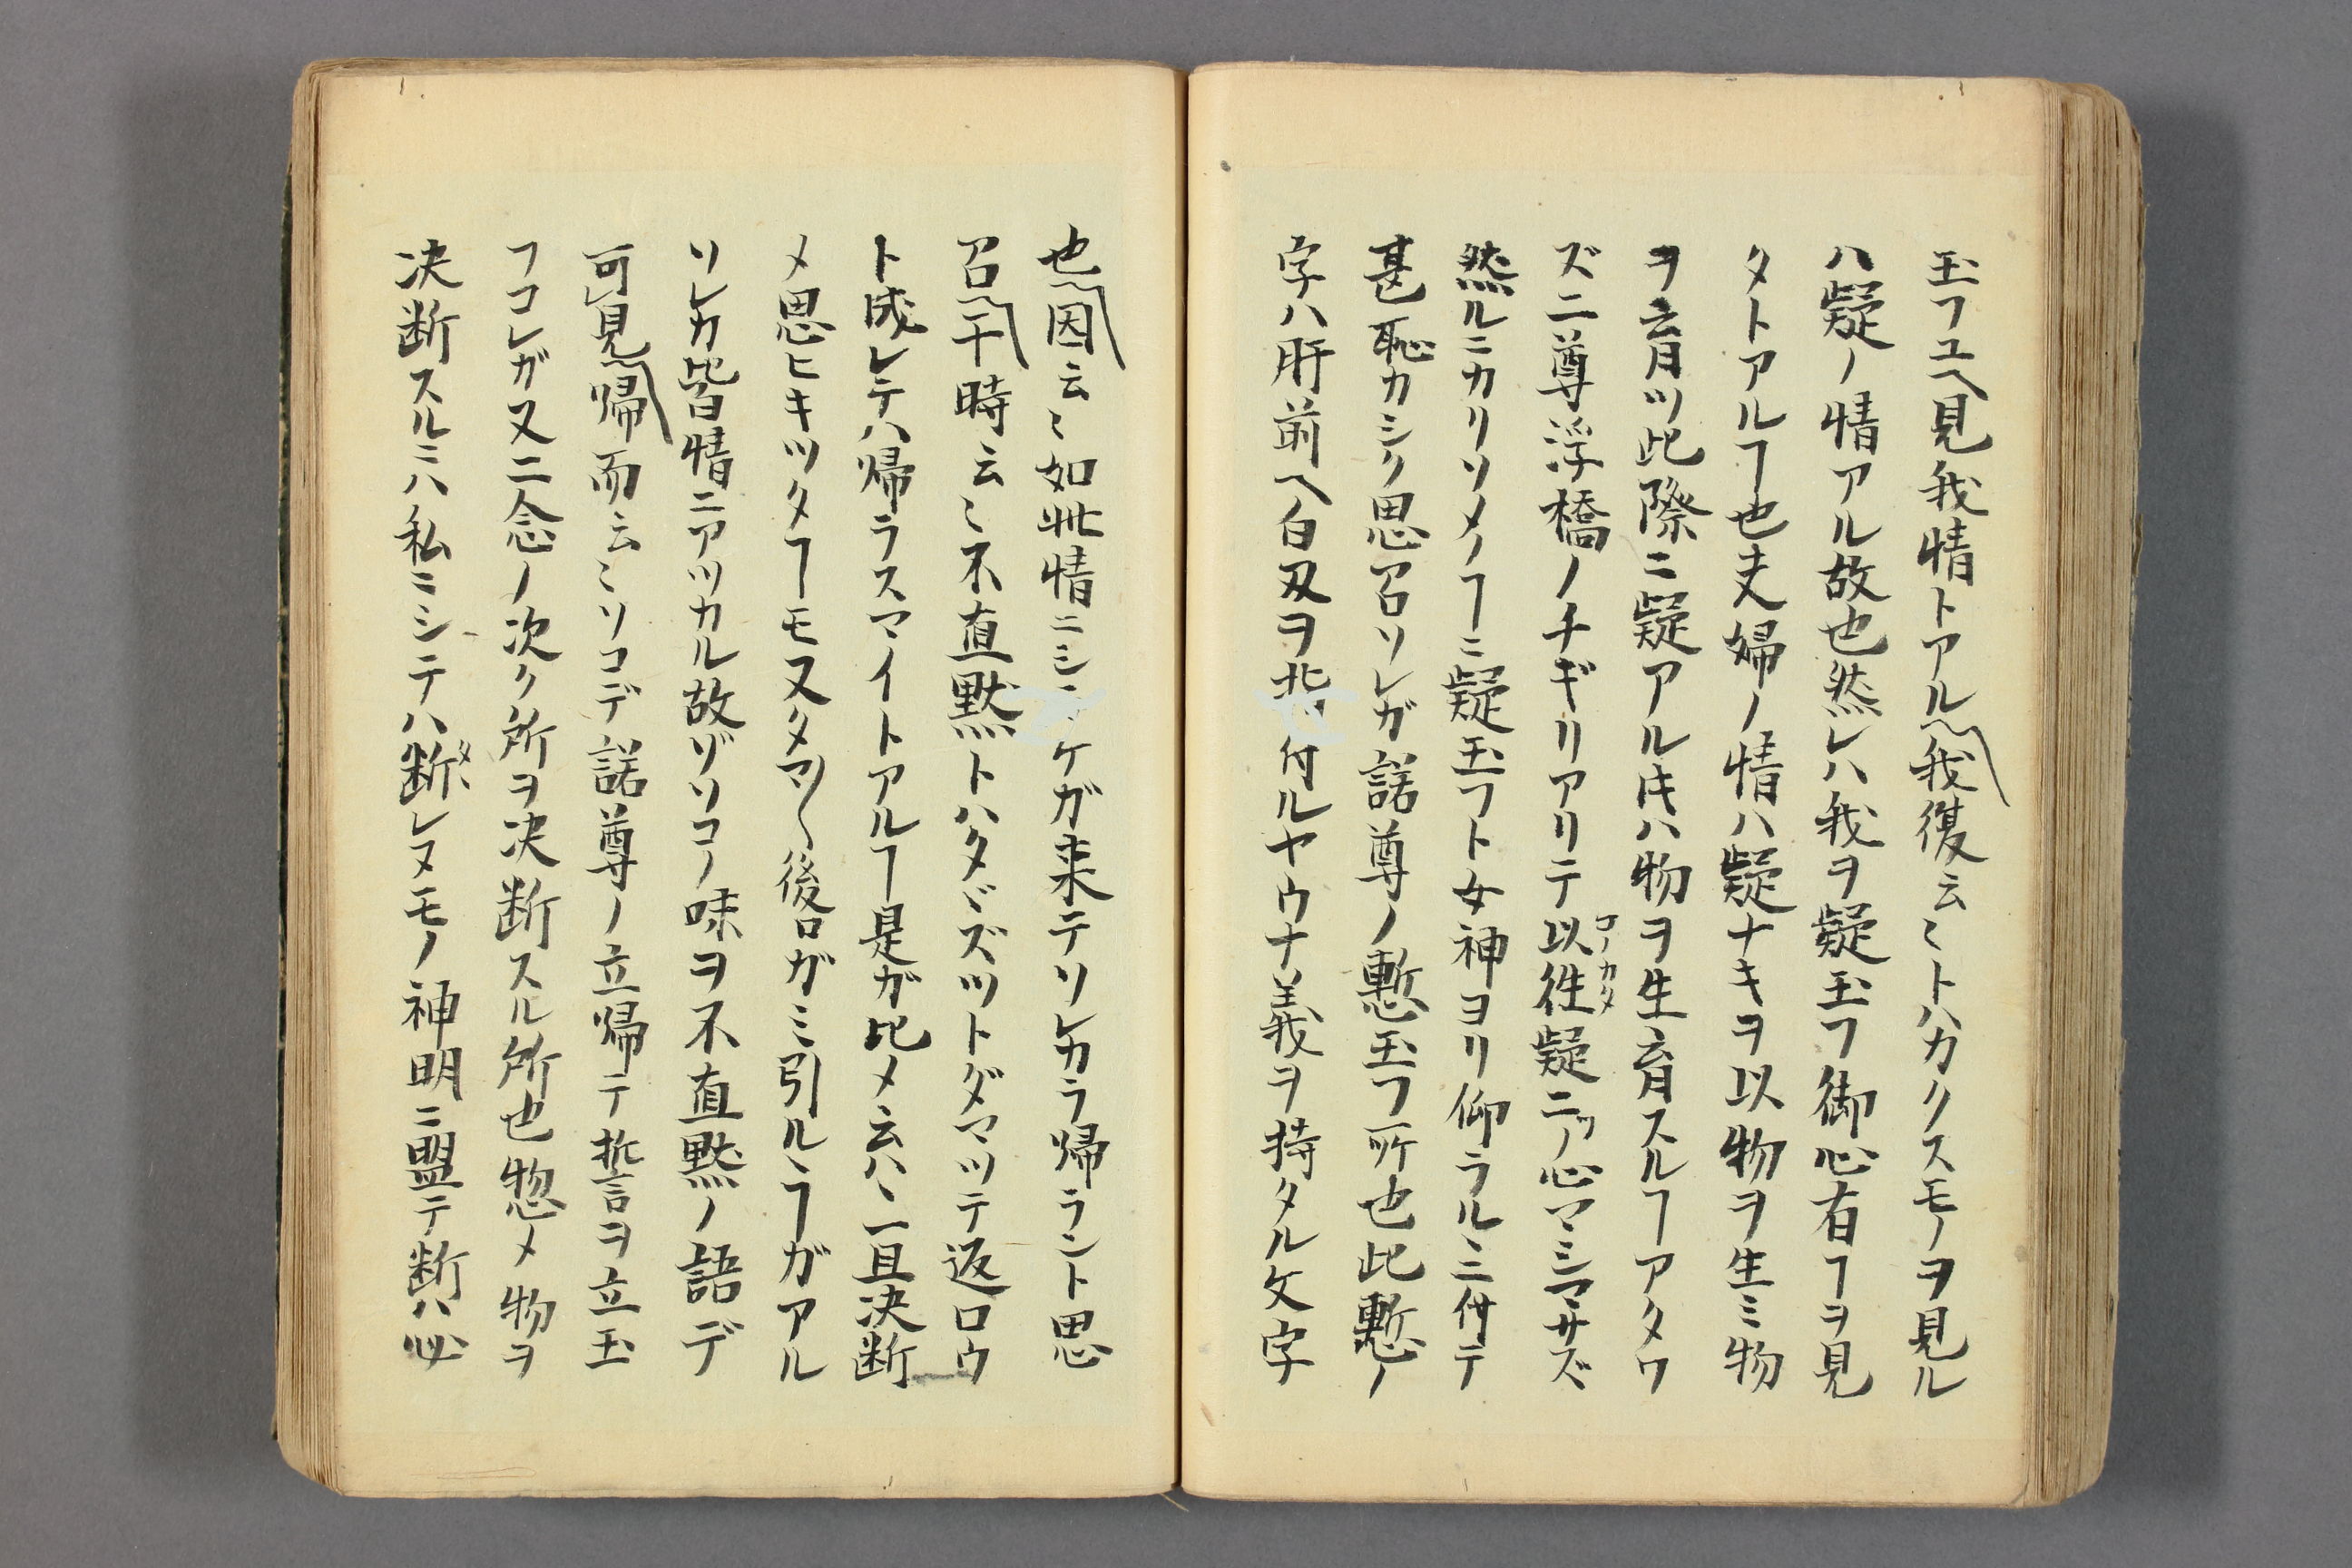 玉フユヘ見我情トアル〽我復云〻トハカクスモノヲ見ル
ハ疑ノ情アル故也然レハ我ヲ疑玉フ御心有ヿヲ見
タトアルヿ也夫婦ノ情ハ疑ナキヲ以物ヲ生ミ物
ヲ育ツ此際ニ疑アル𪜈ハ物ヲ生育スルヿアタワ
ズ二尊浮橋ノチギリアリテ以徃コノカタ疑ニツノ心マシマサズ
然ルニカリソメノヿニ疑玉フト女神ヨリ仰ラルヽニ付テ
甚恥カシク思召ソレガ諾尊ノ慙玉フ所也此慙ノ
字ハ肝前ヘ白刄ヲ指付ルヤウナ義ヲ持タル文字
也〽因云〻如此情ニシケガ来テソレカラ帰ラント思
召〽干時云〻不直黙トハタヾズツトダマツテ返ロウ
ト成レテハ帰ラスマイトアルヿ是ガ此メ云ハヽ一旦决断
メ思ヒキツタヿモ又タマ〳〵後ロガミ引ルヽヿガアル
ソレカ皆情ニアツカル故ゾソコノ味ヲ不直黙ノ語デ
可見〽帰而云〻ソコデ諾尊ノ立帰テ誓言ヲ立玉
フコレガ又二念ノ次ク所ヲ决断スル所也惣メ物ヲ
决断スルニハ私ニシテハ断タヽレヌモノ神明ニ盟テ断ハ必